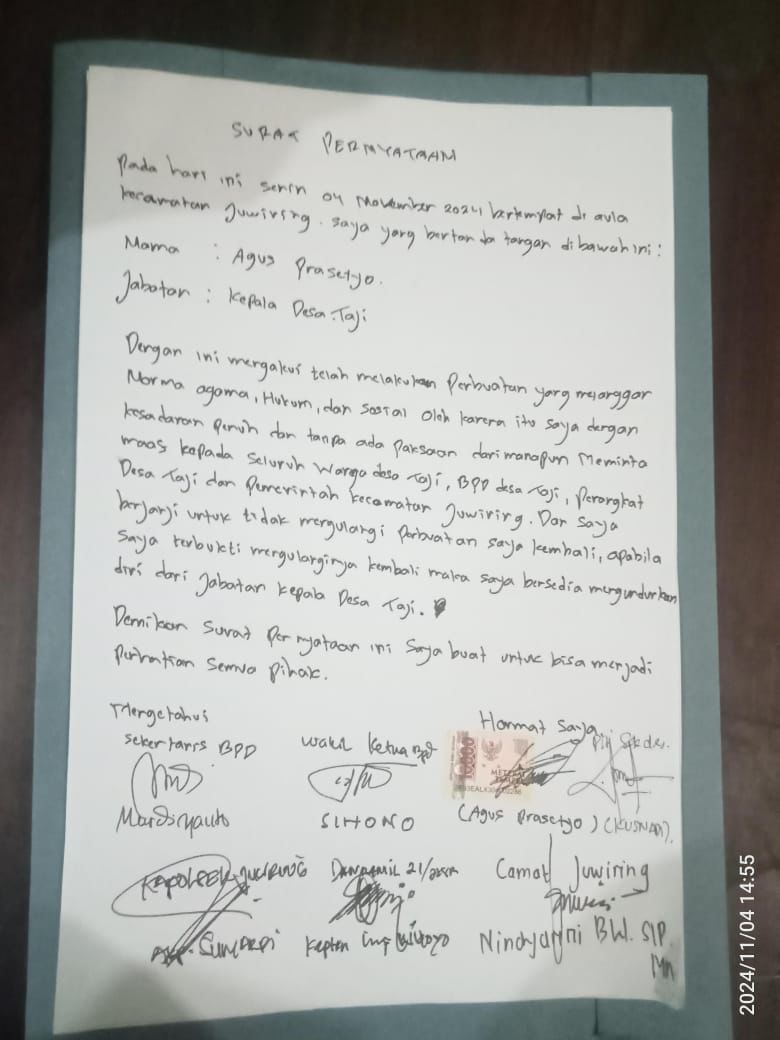 SURAT PERNYATAAN
Pada hari ini senin 04 November 2024 bertempat di aula
kecamatan Juwiring. saya yang bertanda tangan dibawah ini:
Nama : Agus Prasetyo.
Jabatan : Kepala Desa Taji
Dengan ini mengakui telah melakukan Perbuatan yang melanggar
Norma agama, Hukum, dan sosial oleh karena itu saya dengan
kesadaran penuh dan tanpa ada Paksaan darimanapun Meminta
maaf kepada seluruh Warga desa Taji, BPD desa Taji, Perangkat
Desa Taji dan Pemerintah kecamatan Juwiring. Dan saya
berjanji untuk tidak mengulangi Perbuatan saya kembali, apabila
saya terbukti mengulanginya kembali maka saya bersedia mengundurkan
diri dari Jabatan kepala Desa Taji.
Demikian Surat Pernyataan ini Saya buat untuk bisa menjadi
Perhatian Semua pihak.
Mengetahui
Hormat Saya
sekertaris BPD
Wakil Ketua BPD
Plt Sekdes.
10000
METERAI
TEMPEL
Mardiyanto
SIHONO
(Agus Prasetyo)
(KUSNADI).
KAPOLSEK JUWIRING
DANRAMIL 21/
Camat Juwiring
AKP. SUNARDI
Kapten Inf
Nindyarini BW. SIP.
MM
2024/11/04 14:55